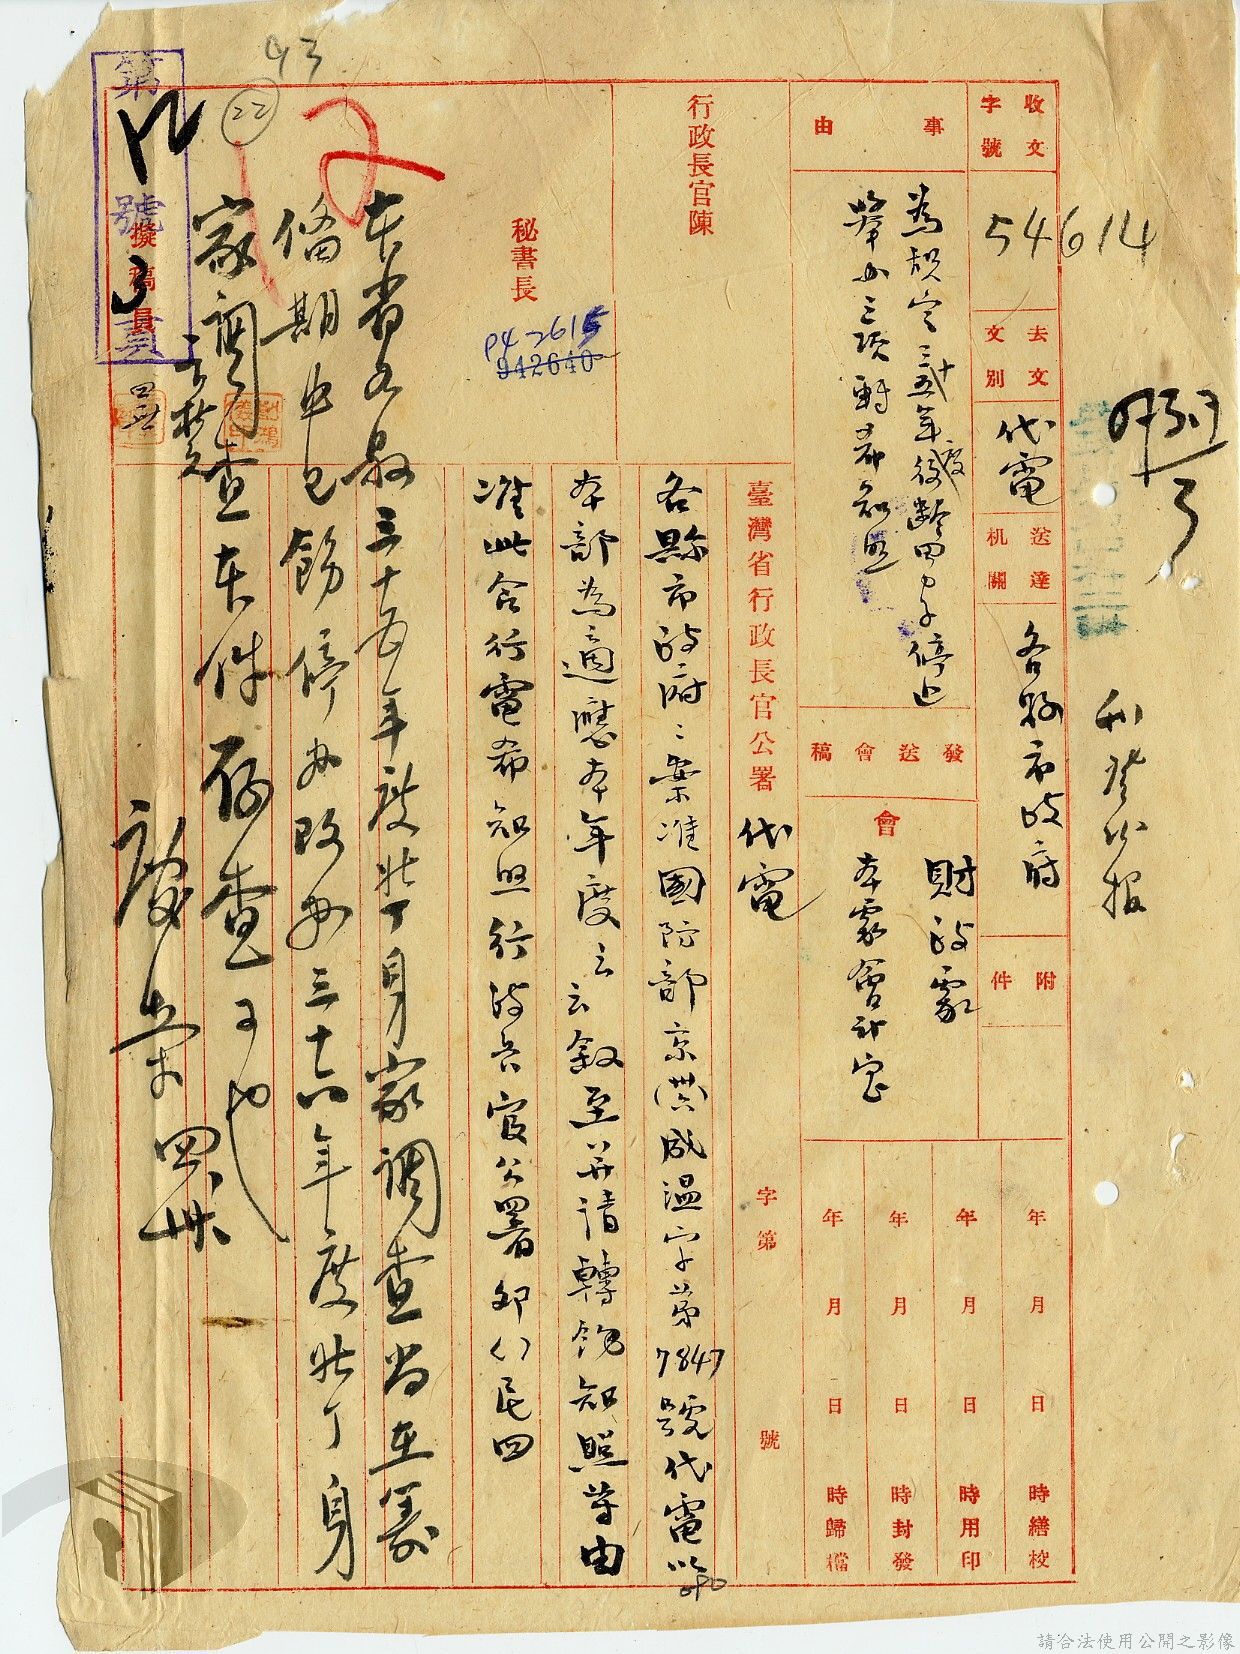 收文
字號
54614
去文
文別
代電
送達
机關
各縣市政府
附件
刊登公報
事由
為規定三十五年度役齡男子停止
舉办三項
希知照
發送會稿
會
財政處
本處會計室
年 月 日 時繕校
年 月 日 時用印
年 月 日 時封發
年 月 日 時歸檔
行政長官陳
秘書長
942640
臺灣省行政長官公署
代電
字第 號
各縣市政府：案准國防部京
字第7847號代電以
本部為適應本年度云云敘至并請轉飭知照等由
准此合行電希知照行政長官公署 民四
本省各縣三十五年度壯丁身家調查尚在籌
備期中已飭停办改办三十六年度壯丁身
家調查本件存查可也
第
號
頁
12
3
擬稿員
22
93
請洽法使用公開之影像